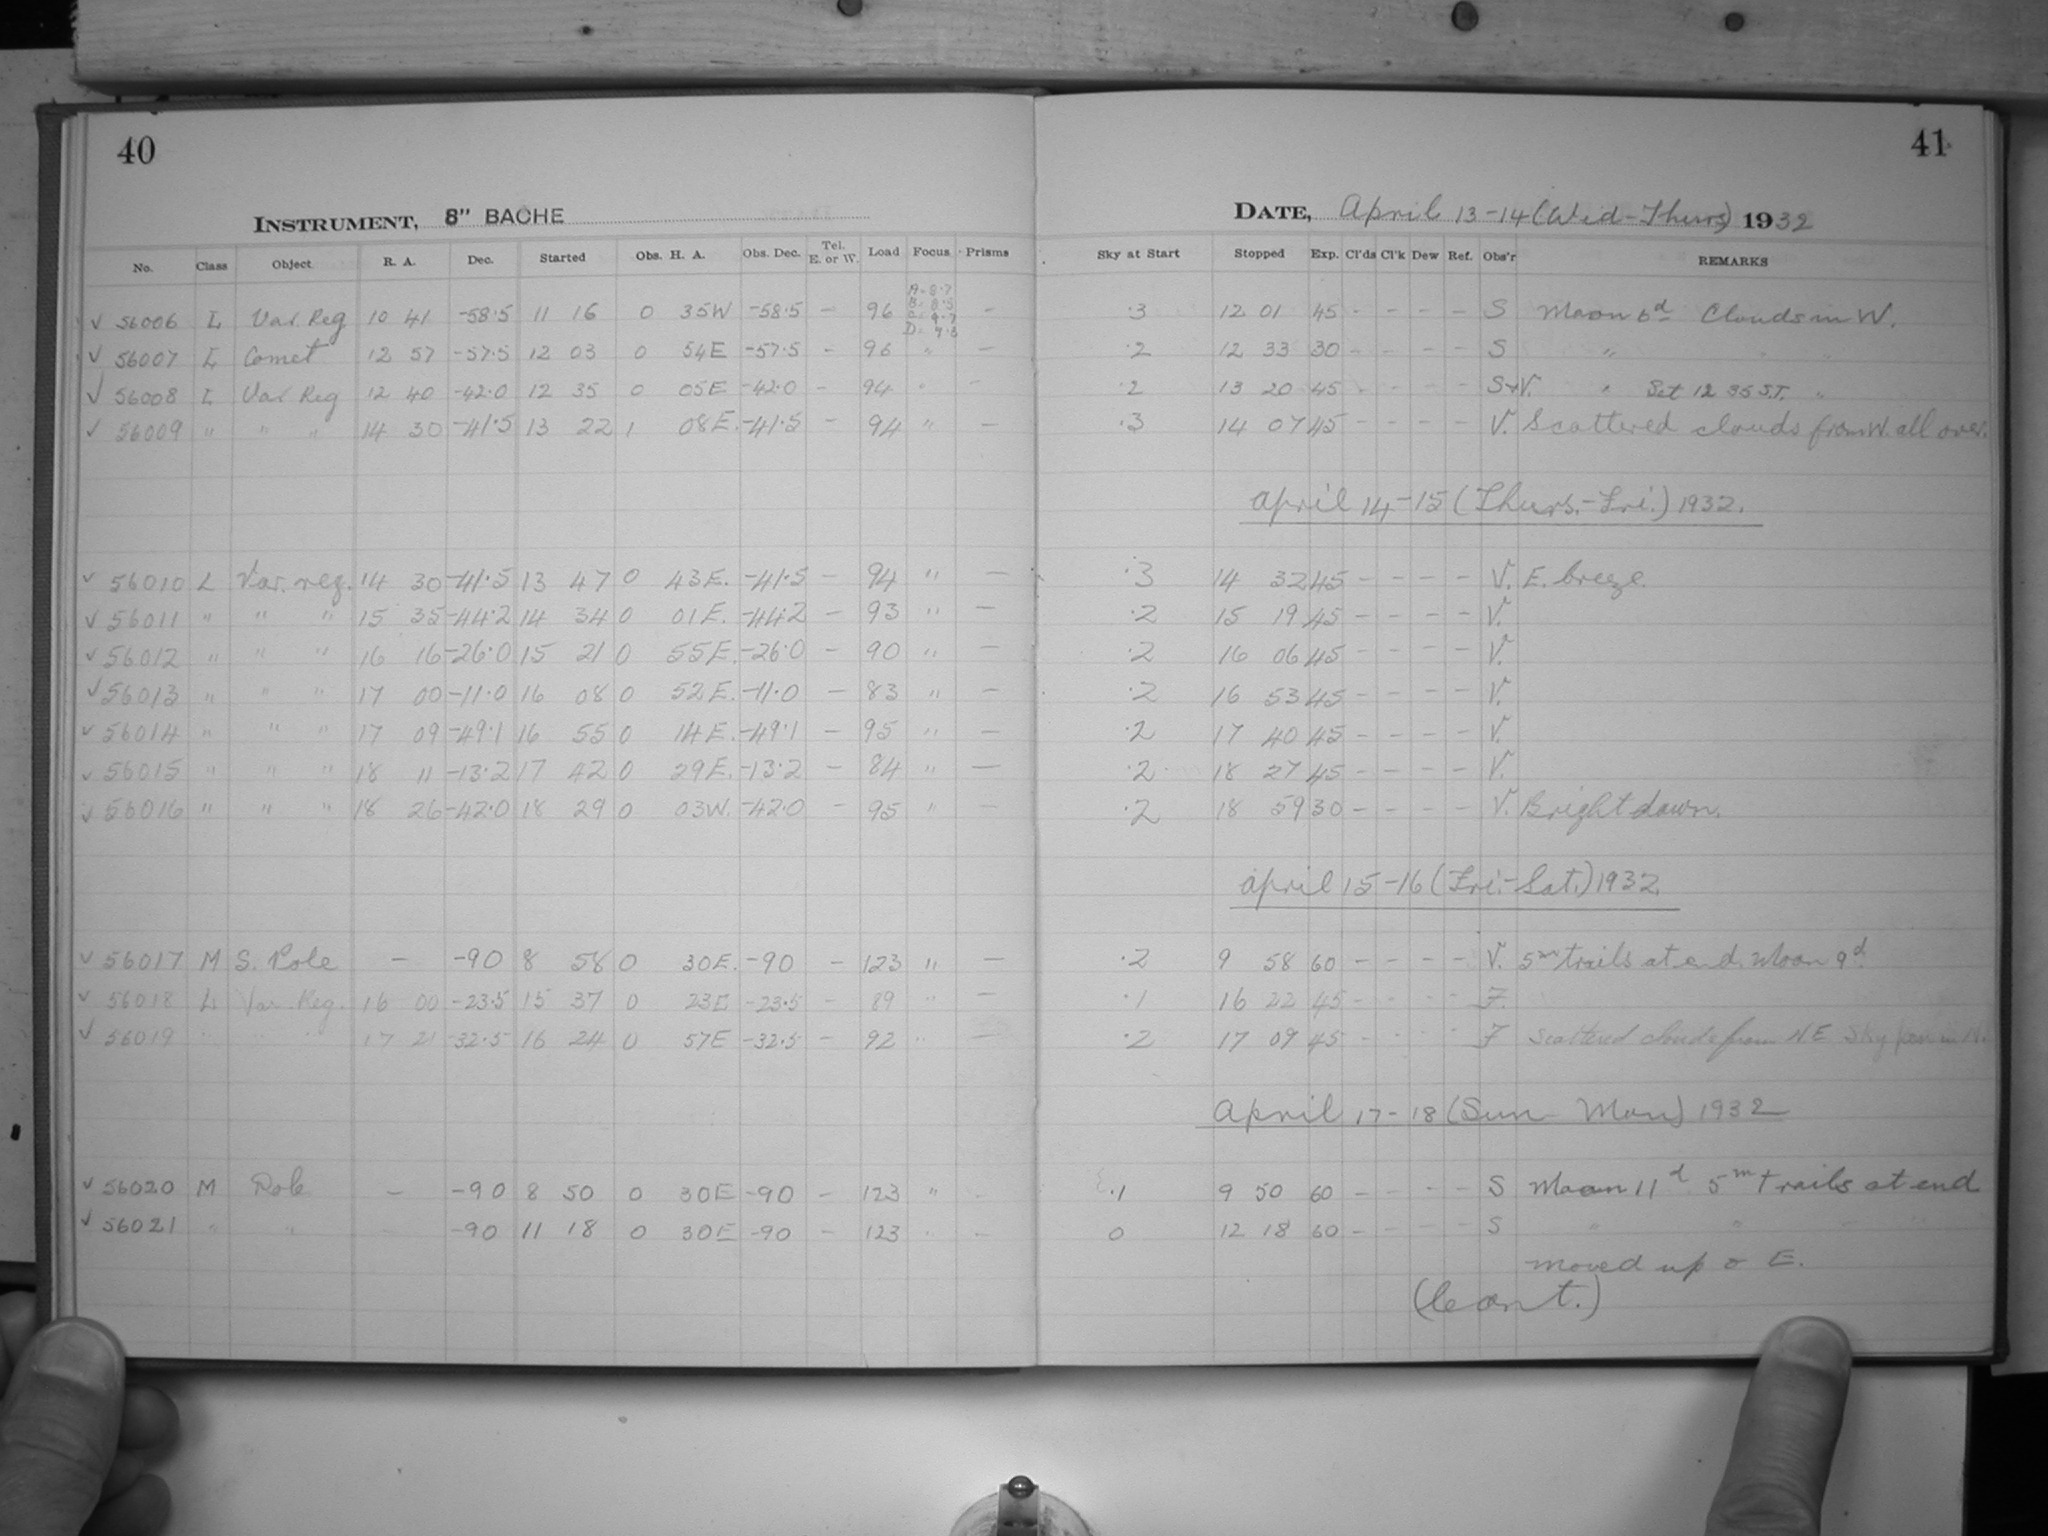 40
41
INSTRUMENT, 8" BACHE
DATE, April 13-14 (Wed-Thurs) 1932
No. Class Object R. A. Dec. Started Obs. H. A. Obs. Dec. Tel. E. or W. Load Focus Prisms Sky at Start Stopped Exp. Cl'ds Cl'k Dew Ref. Obs'r REMARKS
✓ 56006 L Var. Reg 10 41 -58.5 11 16 0 35W -58.5 - 96 - .3 12 01 45 - - - - S Moon 6d Clouds in W.
✓ 56007 L Comet 12 57 -57.5 12 03 0 54E -57.5 - 96 " - .2 12 33 30 - - - - S " " "
✓ 56008 L Var Reg 12 40 -42.0 12 35 0 05E -42.0 - 94 " - .2 13 20 45 - - - - S+V. " Set 12 35 S.T. "
✓ 56009 " " " 14 30 -41.5 13 22 1 08E. -41.5 - 94 " - .3 14 07 45 - - - - V. Scattered clouds from W. all over.
April 14-15 (Thurs.-Fri.) 1932.
✓ 56010 L Var. reg. 14 30 -41.5 13 47 0 43E. -41.5 - 94 " - .3 14 32 45 - - - - V. E. breeze.
✓ 56011 " " " 15 35 -44.2 14 34 0 01E. -44.2 - 93 " - .2 15 19 45 - - - - V.
✓ 56012 " " " 16 16 -26.0 15 21 0 55E. -26.0 - 90 " - .2 16 06 45 - - - - V.
✓ 56013 " " " 17 00 -11.0 16 08 0 52E. -11.0 - 83 " - .2 16 53 45 - - - - V.
✓ 56014 " " " 17 09 -49.1 16 55 0 14E. -49.1 - 95 " - .2 17 40 45 - - - - V.
✓ 56015 " " " 18 11 -13.2 17 42 0 29E. -13.2 - 84 " - .2 18 27 45 - - - - V.
✓ 56016 " " " 18 26 -42.0 18 29 0 03W. -42.0 - 95 " - .2 18 59 30 - - - - V. Bright dawn.
April 15-16 (Fri.-Sat.) 1932
✓ 56017 M S. Pole - -90 8 58 0 30E. -90 - 123 " - .2 9 58 60 - - - - V. 5m trails at end. Moon 9d
✓ 56018 L Var. Reg. 16 00 -23.5 15 37 0 23E -23.5 - 89 " - .1 16 22 45 - - - - F
✓ 56019 " " " 17 21 -32.5 16 24 0 57E -32.5 - 92 " - .2 17 09 45 - - - - F Scattered clouds from NE Sky
April 17-18 (Sun-Mon) 1932
✓ 56020 M Pole - -90 8 50 0 30E -90 - 123 " - .1 9 50 60 - - - - S Moon 11d 5m trails at end
✓ 56021 " " -90 11 18 0 30E -90 - 123 " - 0 12 18 60 - - - - S " " "
moved up & E.
(Cont.)